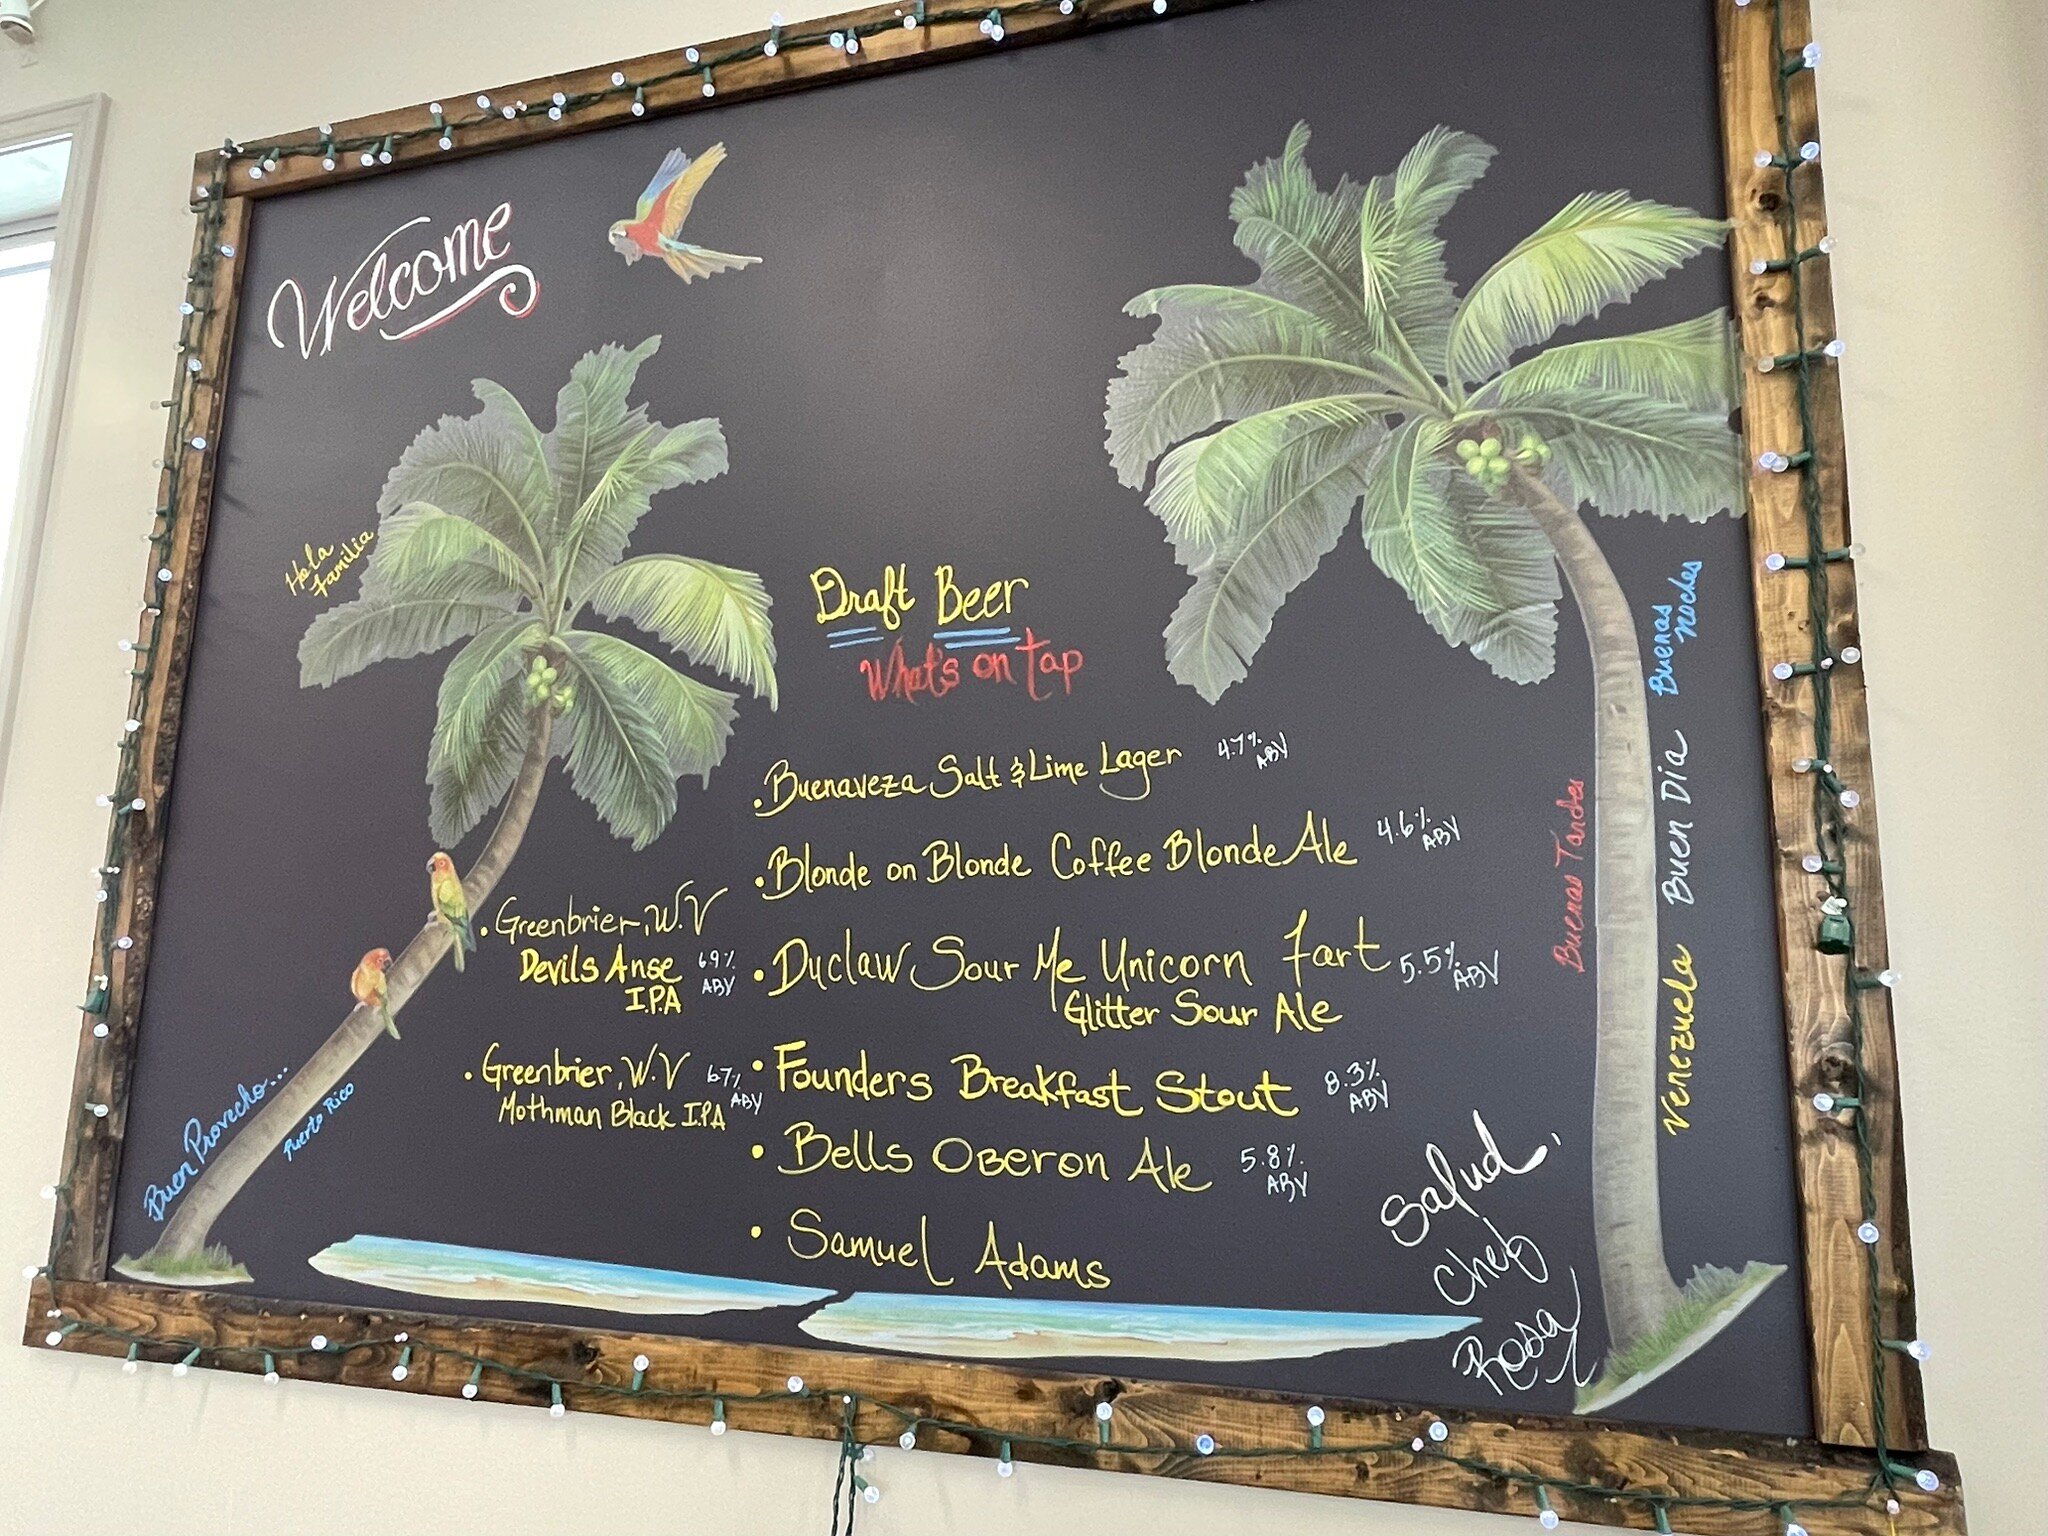 Welcome
Hola
Familia
Draft Beer
What's on tap
• Buenaveza Salt & Lime Lager 4.7% ABV
• Blonde on Blonde Coffee Blonde Ale 4.6% ABV
• Duclaw Sour Me Unicorn Fart 5.5% ABV
Glitter Sour Ale
• Founders Breakfast Stout 8.3% ABV
• Bells Oberon Ale 5.8% ABV
• Samuel Adams
• Greenbrier, W.V
Devils Anse 69% ABV
I.P.A
• Greenbrier, W.V 67% ABV
Mothman Black I.P.A
Buen Provecho...
Puerto Rico
Buenas Tardes
Buenas
noches
Buen Dia
Venezuela
Salud,
Chef
Rosa